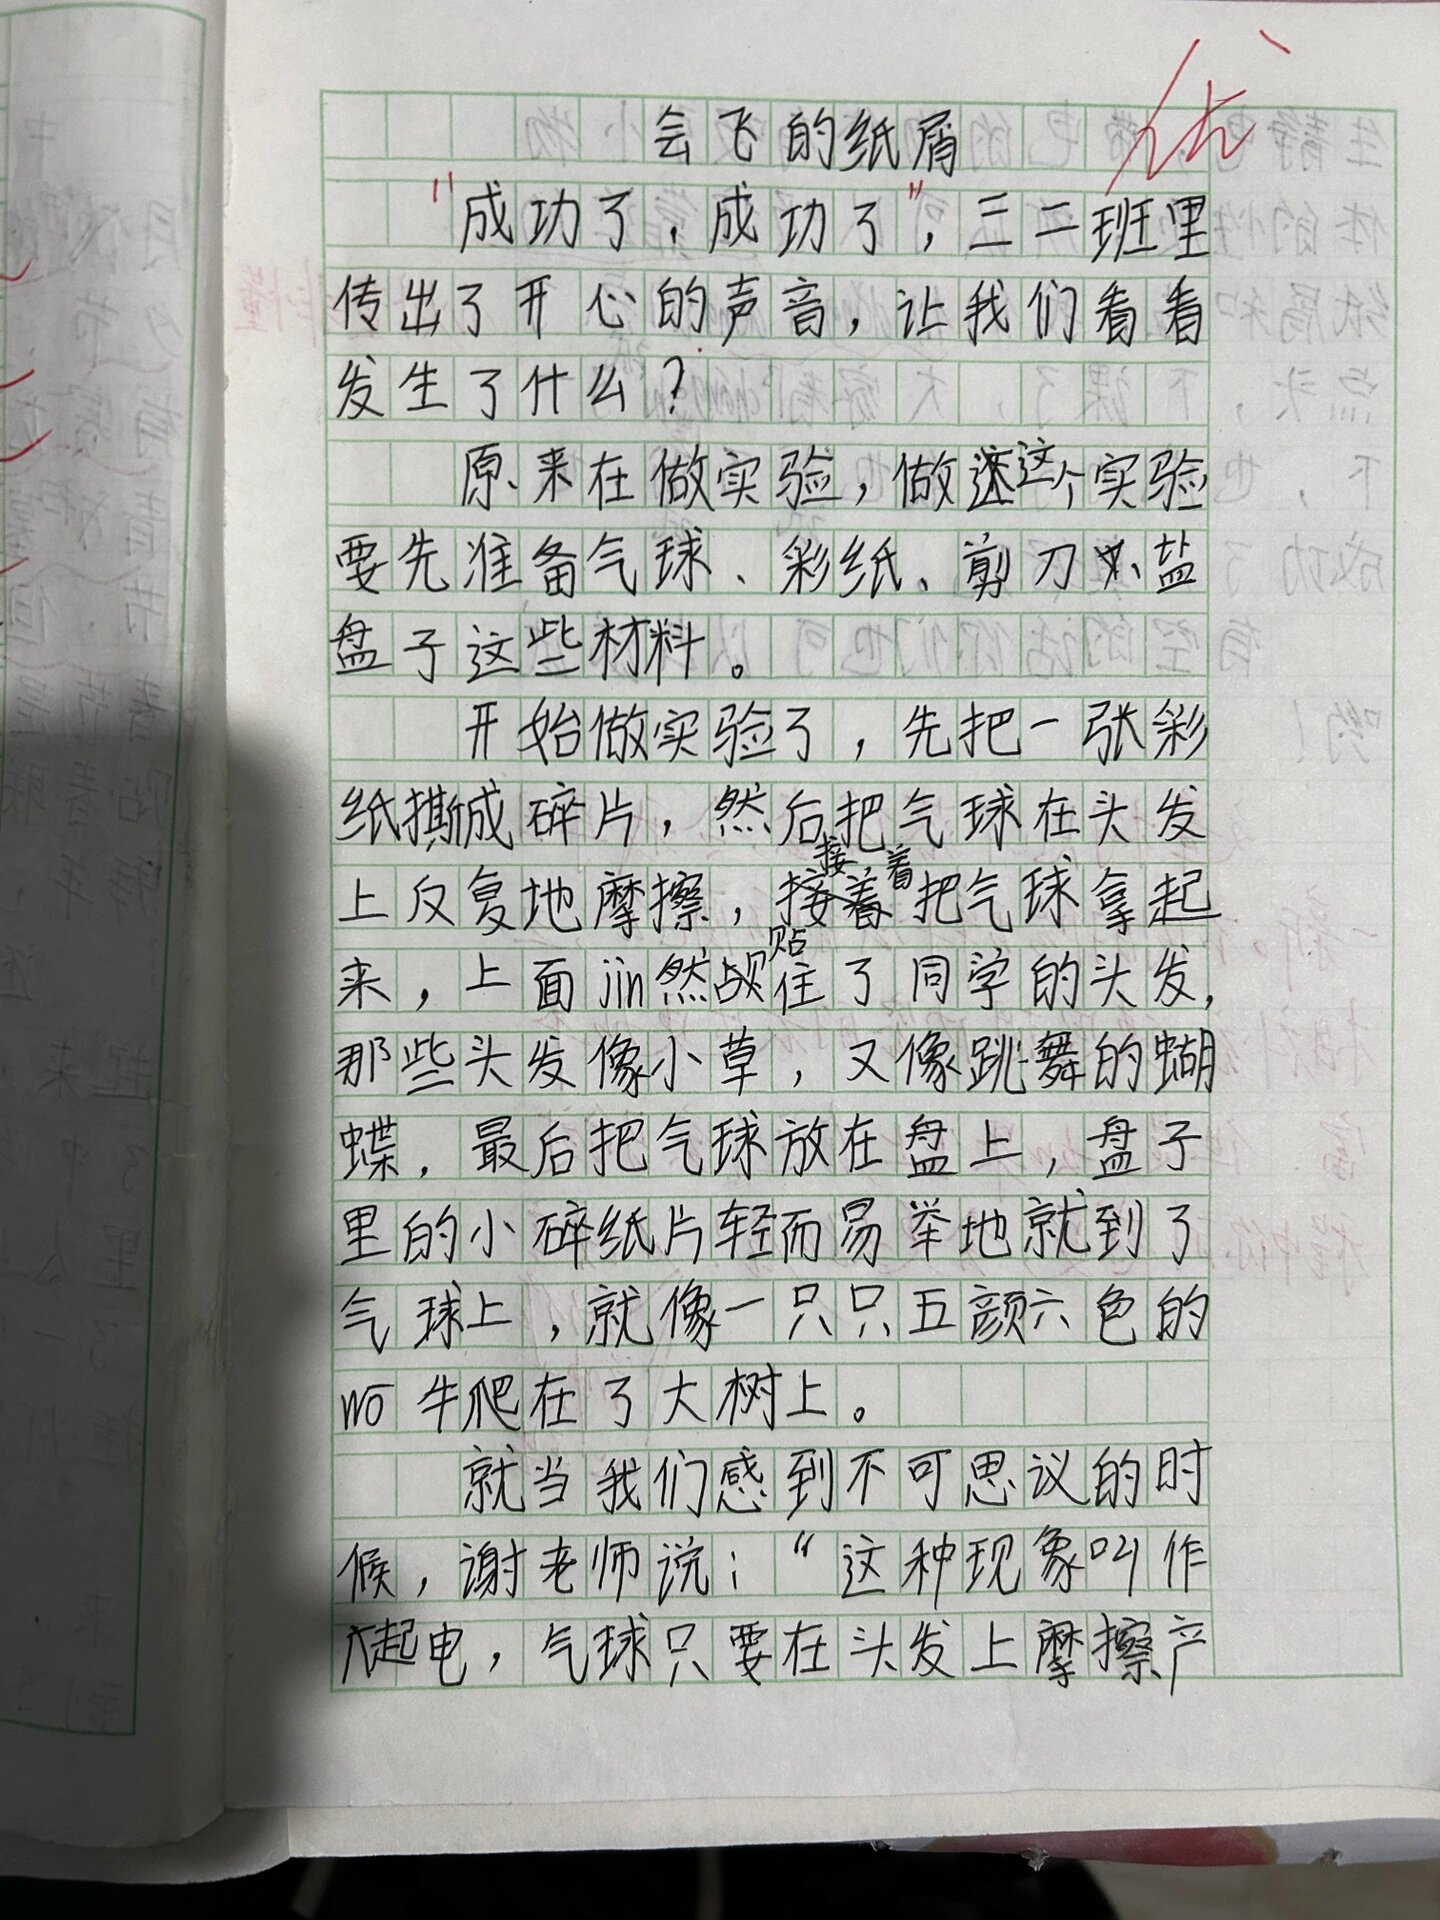 会飞的纸屑
优
"成功了，成功了"，三二班里
传出了开心的声音，让我们看看
发生了什么？
原来在做实验，做这个实验
要先准备气球、彩纸、剪刀、盐
盘子这些材料。
开始做实验了，先把一张彩
纸撕成碎片，然后把气球在头发
上反复地摩擦，接着把气球拿起
来，上面jin然贴住了同学的头发，
那些头发像小草，又像跳舞的蝴
蝶，最后把气球放在盘上，盘子
里的小碎纸片轻而易举地就到了
气球上，就像一只只五颜六色的
wō牛爬在了大树上。
就当我们感到不可思议的时
候，谢老师说："这种现象叫作
起电，气球只要在头发上摩擦产